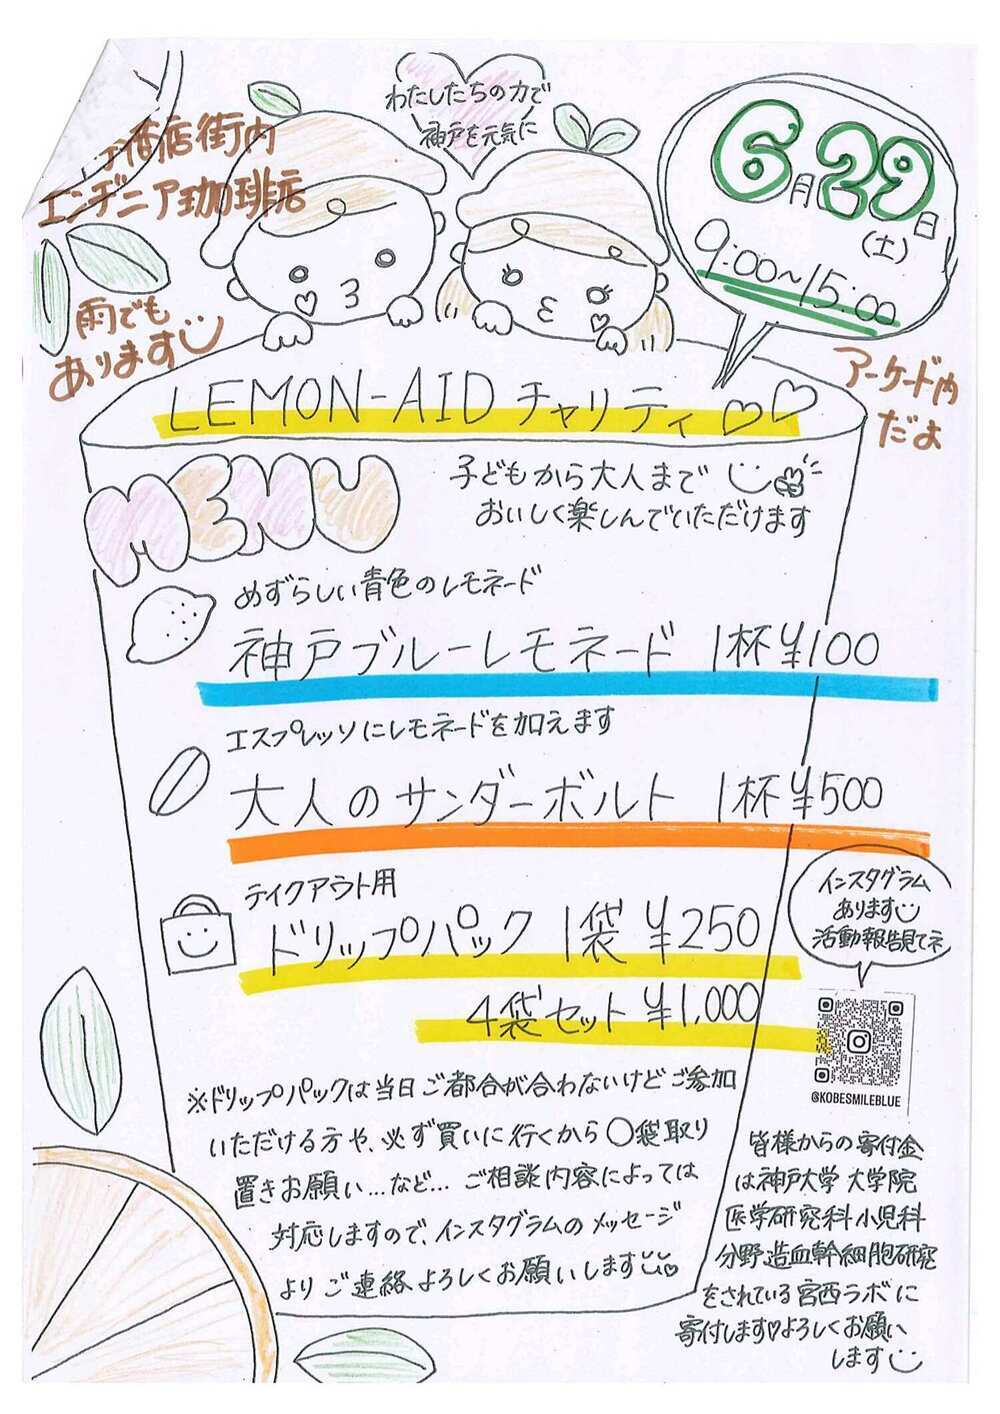 わたしたちの力で
神戸を元気に
商店街内
エンヂニア珈琲店
雨でも
あります
6月29日
(土)
9:00~15:00
アーケード内
だよ
LEMON-AIDチャリティ
MENU
子どもから大人まで
おいしく楽しんでいただけます
めずらしい青色のレモネード
神戸ブルーレモネード 1杯¥100
エスプレッソにレモネードを加えます
大人のサンダーボルト 1杯¥500
テイクアウト用
ドリップパック 1袋¥250
4袋セット¥1,000
インスタグラム
あります
活動報告見てネ
@KOBESMILEBLUE
※ドリップパックは当日ご都合が合わないけどご参加
いただける方や、必ず買いに行くから〇袋取り
置きお願い...など... ご相談内容によっては
対応しますので、インスタグラムのメッセージ
よりご連絡よろしくお願いします
皆様からの寄付金
は神戸大学大学院
医学研究科小児科
分野造血幹細胞研究
をされている宮西ラボに
寄付します♡よろしくお願い
します